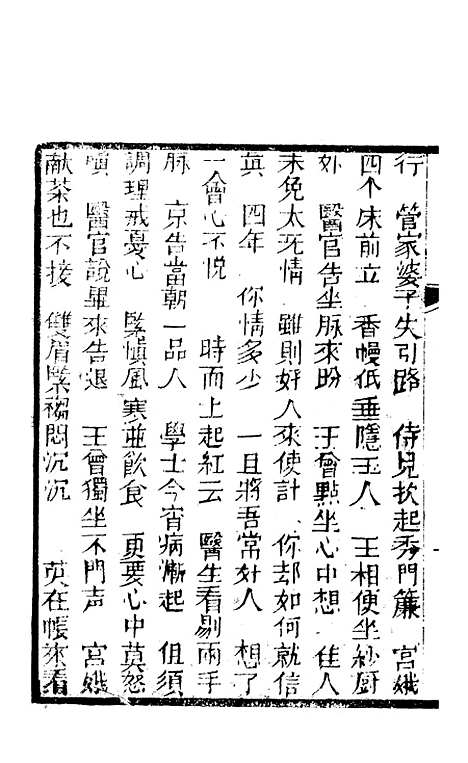 行　管家婆子先引路　侍兒扶起秀門簾　宮娥
四个床前立　香幔低垂隱玉人　王相便坐紗厨
外　醫官告坐脉來盼　王曾點坐心中想　佳人
未免太旡情　雖則好人來使計　你却如何就信
真　四年　你情多少　一旦將吾常好人　想了
一會心不悅　時而上起紅云　醫生看剔兩手
脉　京告當朝一品人　學士今宵病漸起　但須
調理戒憂心　緊慎風寒並飲食　更要心中莫怨
嗔　醫官說畢來告退　王曾獨坐不門声　宮娥
献茶也不接　雙眉緊縐悶沉沉　英在帳來看